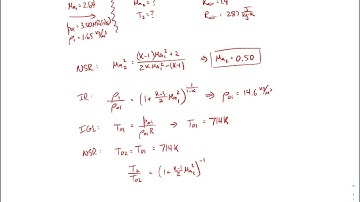 Ma₁ = 2.64
p₀₁ = 3.00 MPa (abs)
ρ₁ = 1.65 kg/m³
Ma₂ = ?
T₂ = ?
R_air = 287 J/kg·K
NSR: Ma₂² = (k-1)Ma₁² + 2 / 2kMa₁² - (k-1) ⇒ Ma₂ = 0.50
IR: ρ₁/ρ₀₁ = (1 + k-1/2 Ma₁²)^(1/1-k) ⇒ ρ₀₁ = 14.6 kg/m³
IGL: T₀₁ = p₀₁/ρ₀₁R ⇒ T₀₁ = 714K
NSR: T₀₂ = T₀₁ = 714K
T₂/T₀₂ = (1 + k-1/2 Ma₂²)⁻¹